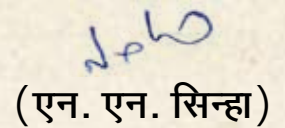 (एन. एन. सिन्हा)